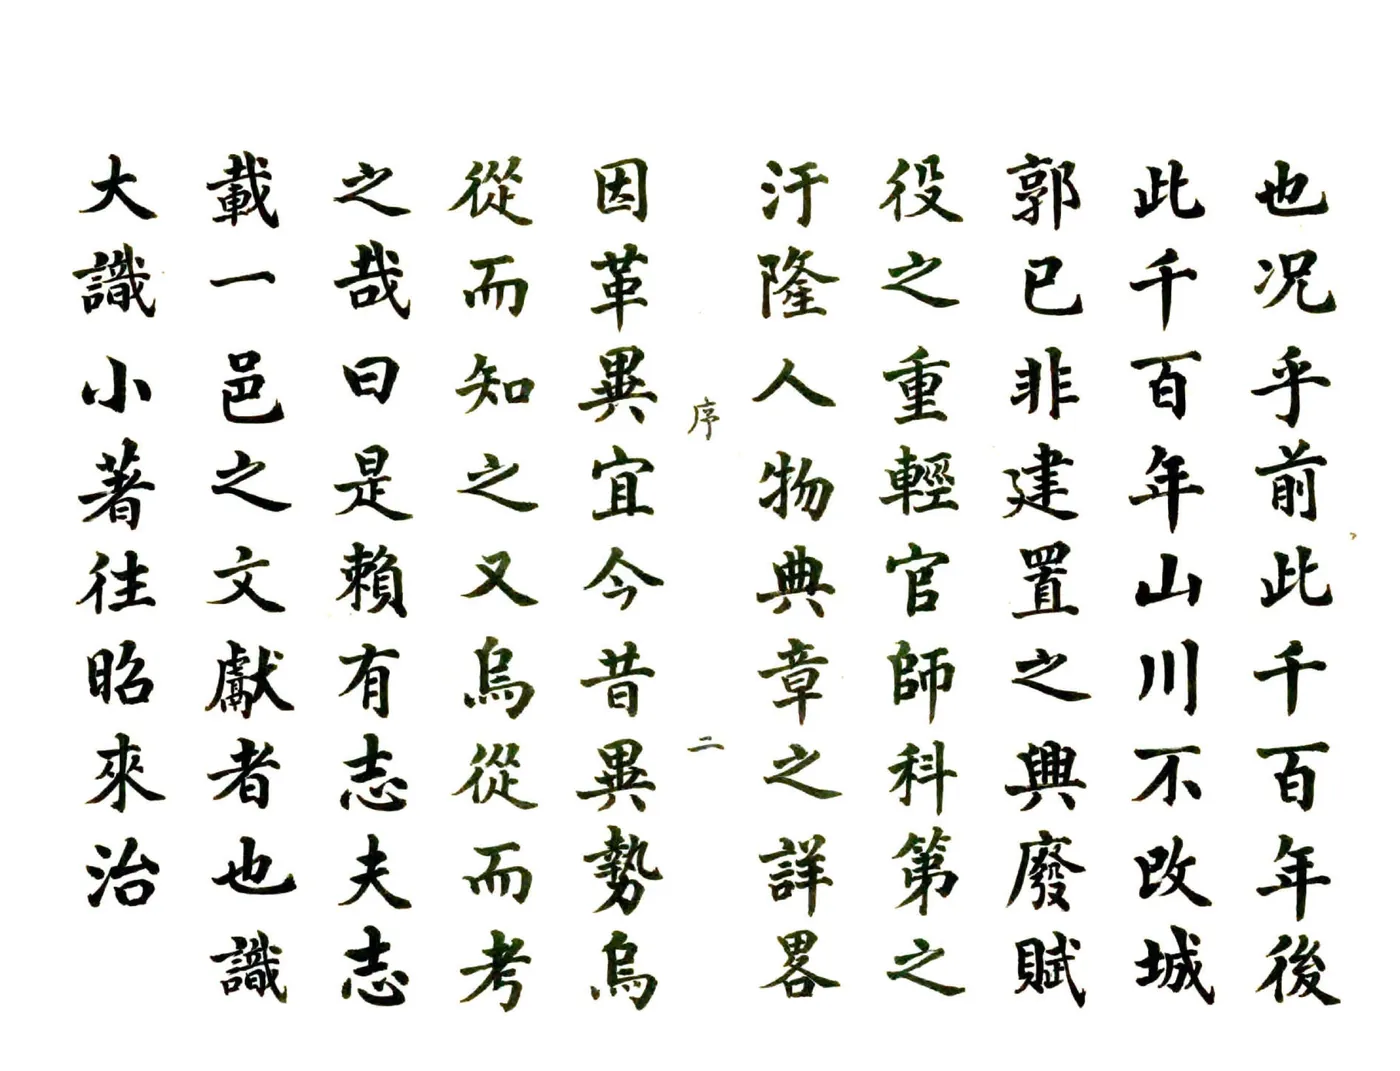 也况乎前此千百年後
此千百年山川不改城
郭已非建置之興廢賦
役之重輕官師科第之
汙隆人物典章之詳畧
序 二
因革異宜今昔異勢烏
從而知之又烏從而考
之哉曰是賴有志夫志
載一邑之文獻者也識
大識小著往昭來治